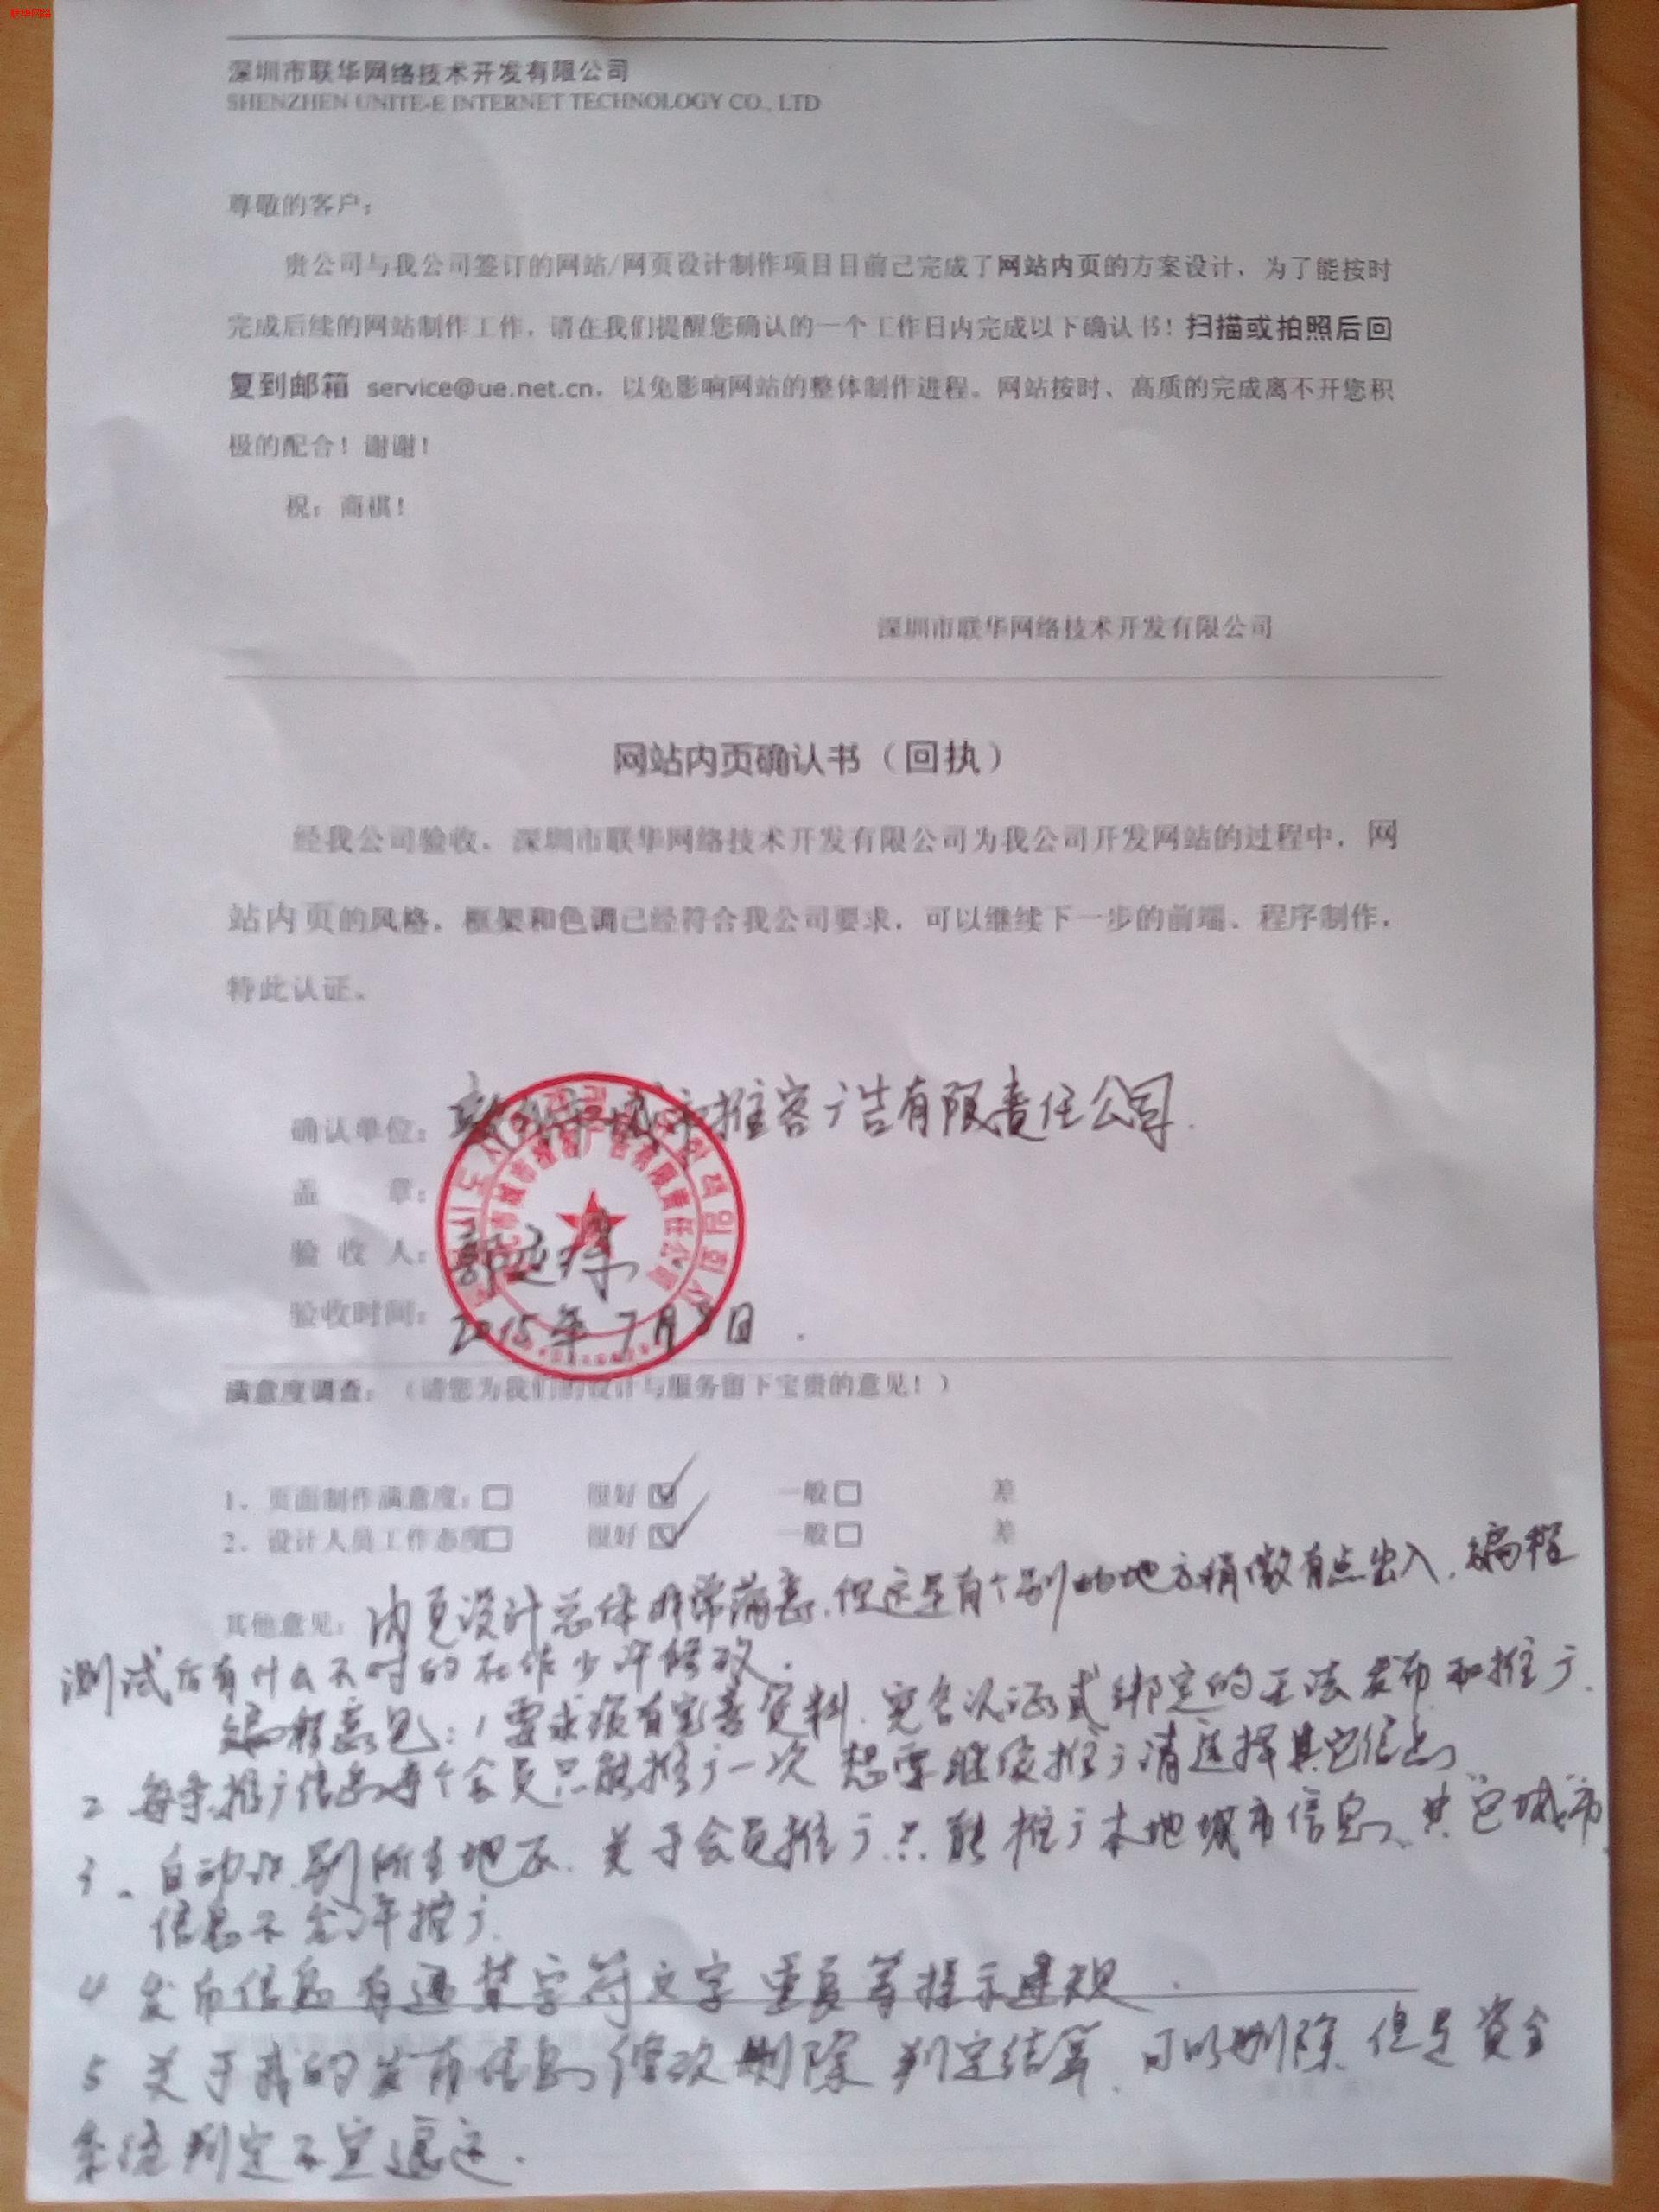 联华网络
深圳市联华网络技术开发有限公司
SHENZHEN UNITE-E INTERNET TECHNOLOGY CO., LTD
尊敬的客户：
贵公司与我公司签订的网站/网页设计制作项目目前已完成了网站内页的方案设计，为了能按时
完成后续的网站制作工作，请在我们提醒您确认的一个工作日内完成以下确认书！扫描或拍照后回
复到邮箱 service@ue.net.cn，以免影响网站的整体制作进程。网站按时、高质的完成离不开您积
极的配合！谢谢！
祝：商祺！
深圳市联华网络技术开发有限公司
网站内页确认书（回执）
经我公司验收，深圳市联华网络技术开发有限公司为我公司开发网站的过程中，网
站内页的风格，框架和色调已经符合我公司要求，可以继续下一步的前端、程序制作，
特此认证。
确认单位： 市城市推客广告有限责任公司.
盖 章：
市城市推客广告有限责任公司
验 收 人： 郭
验收时间： 2015年7月8日.
满意度调查：（请您为我们的设计与服务留下宝贵的意见！）
1、页面制作满意度：□ 很好☑ 一般□ 差
2、设计人员工作态度□ 很好☑ 一般□ 差
其他意见： 内页设计总体非常满意.但还是有个别的地方稍微有点出入.编程
测试后有什么不对的在作少许修改.
编程意见：1要求须有完善资料.实名认证或绑定的无法发布和推广.
2 每条推广信息每个会员只能推广一次 想要继续推广请选择其它信息
3、自动识别所在地区.关于会员推广.只能推广本地城市信息.其它城市
信息不允许推广.
4 发布信息有违禁字符文字重复等提示违规.
5 关于我的发布信息修改删除 判定结算.可以删除.但是资金
系统判定不宜退还.